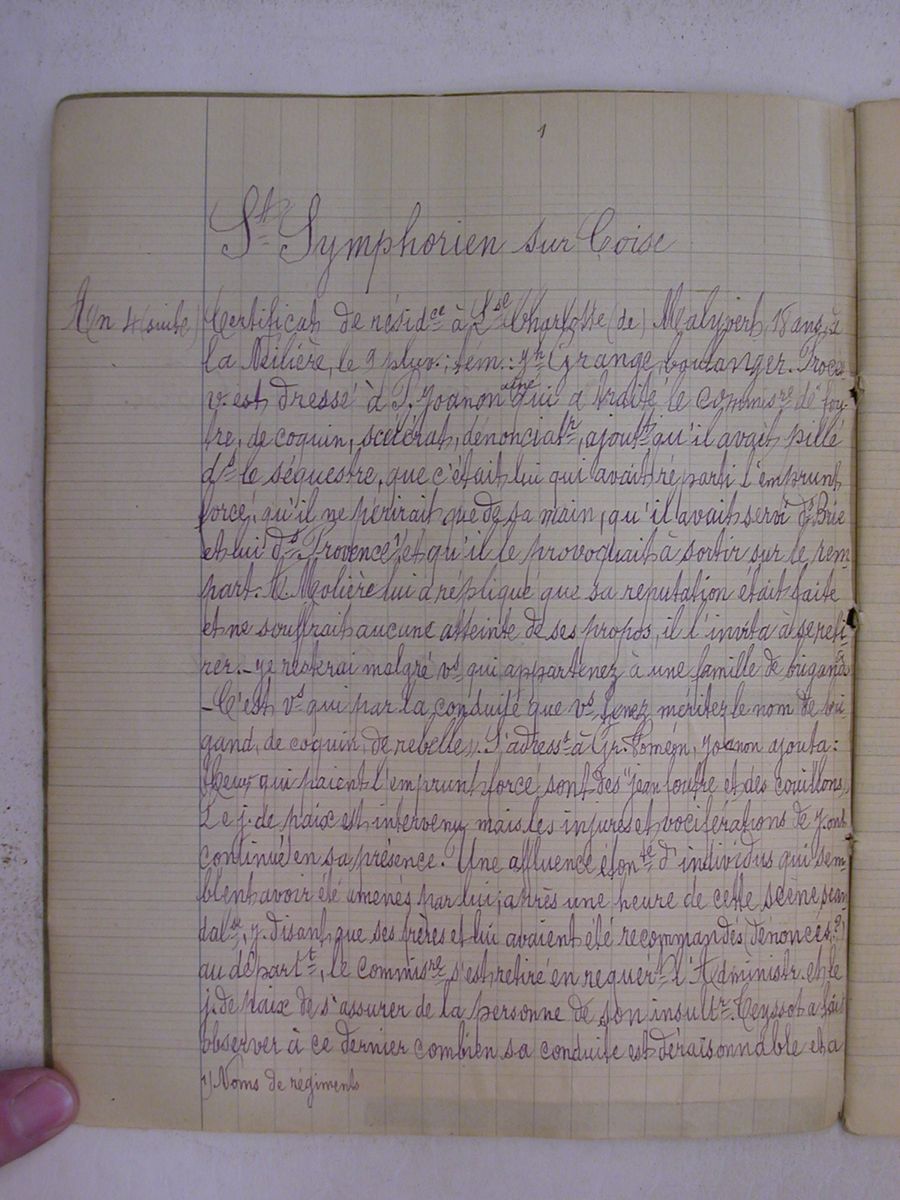 1
St Symphorien sur Coise
An 4 (suite) Certificat de résidce à Lse Charlotte (de) Malyvert, 18 ans, à
la Neilière, le 9 pluv.; tém.: Jn Grange, boulanger. Procè
v. est dressé à P. Joanon aîné qui a traité le commisre de fou-
tre, de coquin, scélérat, dénonciatr, ajoutt qu'il avait pillé
ds le séquestre, que c'était lui qui avait réparti l'emprunt
forcé, qu'il ne périrait que de sa main, qu'il avait servi ds Brie
et lui ds Provence 1) et qu'il le provoquait à sortir sur le rem-
part. le Molière lui a répliqué que sa réputation était faite
et ne souffrait aucune atteinte de ses propos, il l'invita à se reti-
rer. – Je resterai malgré vs qui appartenez à une famille de brigands
– C'est vs qui par la conduite que vs tenez méritez le nom de bri-
gand, de coquin, de rebelle». S'adresst à Gr. Poméon, Joanon ajouta:
«ceux qui paient l'emprunt forcé sont des "jean foutre et des couillons»
Le j. de paix est intervenu mais les injures et vociférations de J. ont
continué en sa présence. Une affluence étonte d'individus qui sem-
blent avoir été amenés par lui; après une heure de cette scène scan-
dalse, J. disant que ses frères et lui avaient été recommandés (dénoncés?)
au départt, le commisre s'est retiré en requért l'Administr. et le
j. de paix de s'assurer de la personne de son insultr. Ceyssot a fait
observer à ce dernier combien sa conduite est déraisonnable et a
1) Noms de régiments